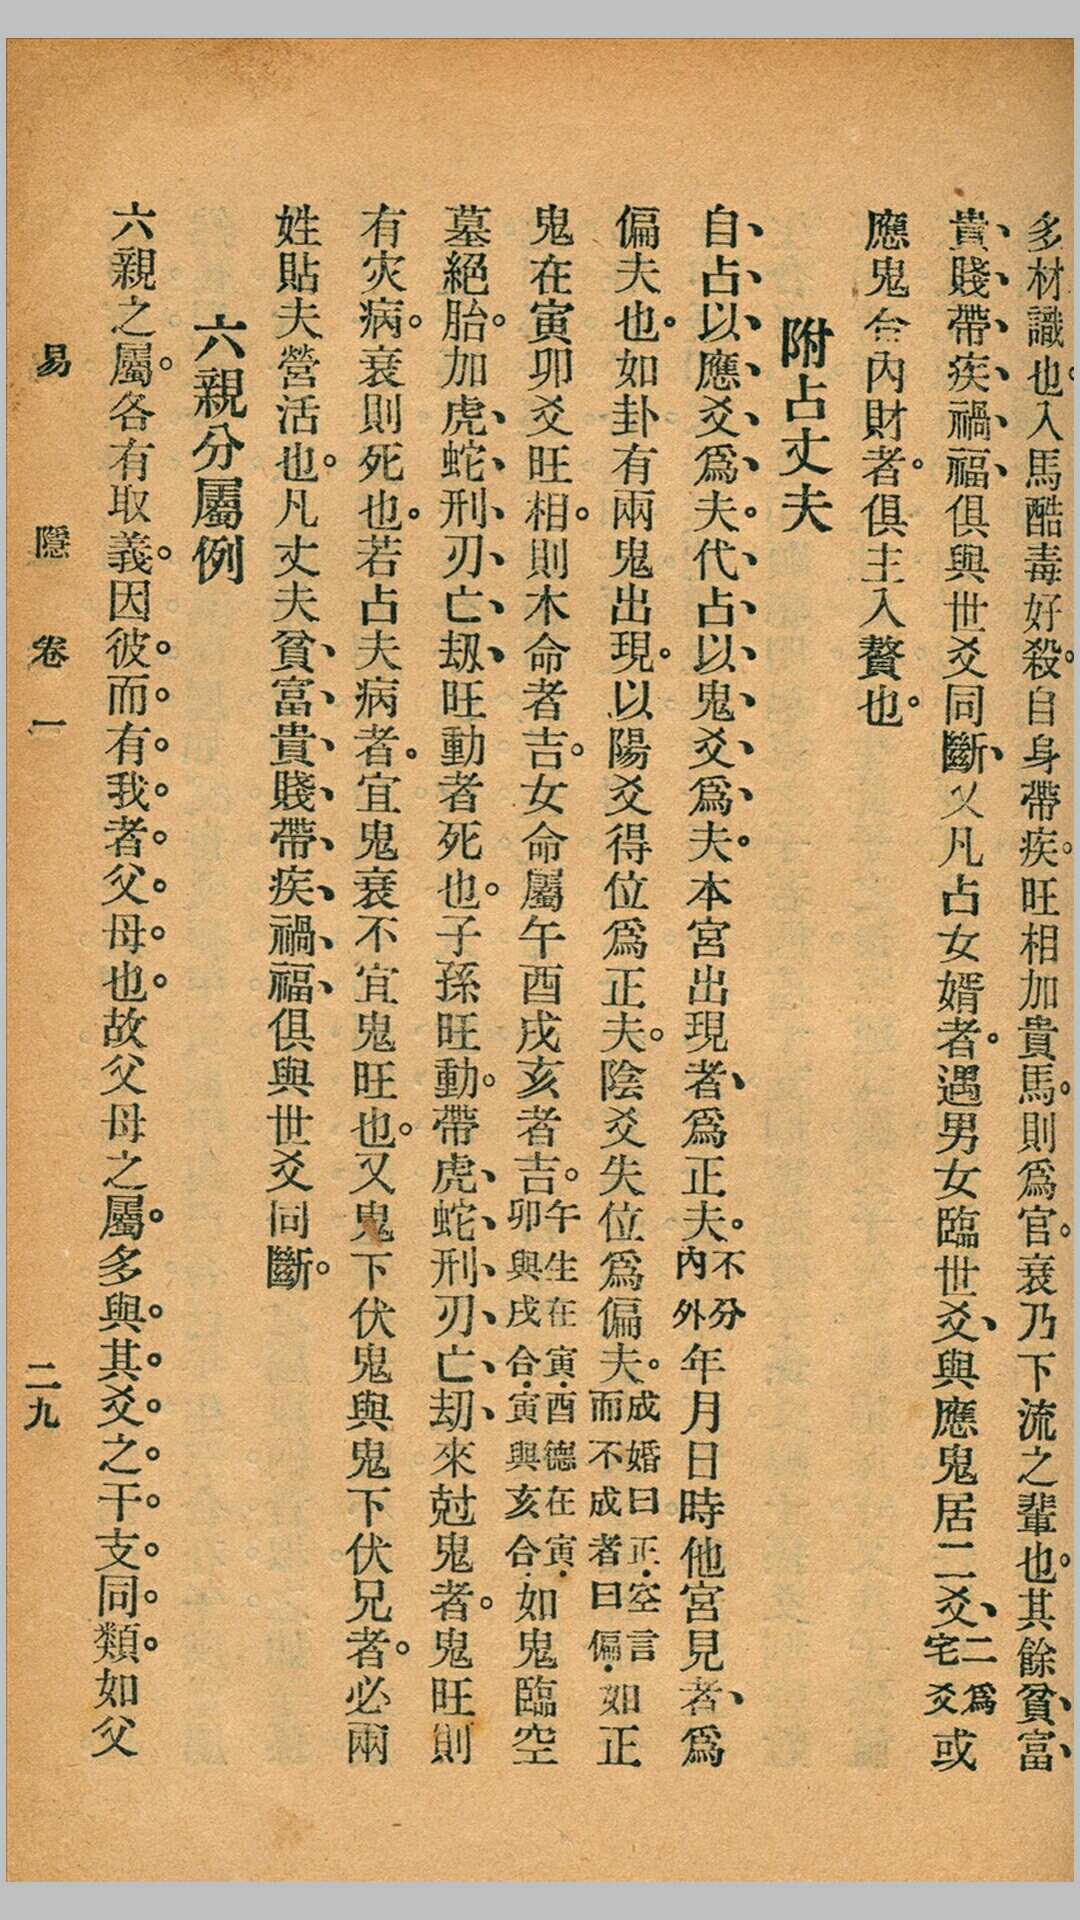 多材識也。入馬酷毒好殺。自身帶疾。旺相加貴馬。則爲官。衰乃下流之輩也。其餘貧、富、
貴、賤、帶、疾、禍、福、俱與世爻同斷、又凡占女婿者。遇男女臨世爻、與應鬼居二爻、二爲宅爻或
應鬼合內財者。俱主入贅也。
附占丈夫
自、占、以、應、爻、爲、夫。代、占、以、鬼、爻、爲、夫。本宮出現者、爲正夫。不分內外年月日時他宮見者、爲
偏夫也。如卦有兩鬼出現。以陽爻得位爲正夫。陰爻失位爲偏夫。成婚曰正。空言而不成者曰偏。如正
鬼在寅卯爻旺相。則木命者吉。女命屬午酉戌亥者吉。午生在寅。酉德在寅。卯與戌合。寅與亥合。如鬼臨空
墓絕胎。加虎、蛇、刑、刃、亡、劫、旺動者死也。子孫旺動。帶虎、蛇、刑、刃、亡、劫、來尅鬼者。鬼旺則
有灾病。衰則死也。若占夫病者。宜鬼衰不宜鬼旺也。又鬼下伏鬼與鬼下伏兄者。必兩
姓貼夫營活也。凡丈夫貧、富、貴、賤、帶、疾、禍、福、俱與世爻同斷。
六親分屬例
六親之屬。各有取義。因彼。而。有。我。者。父。母。也。故父母之屬。多與。其。爻。之。干。支。同。類。如父
易隱卷一
二九